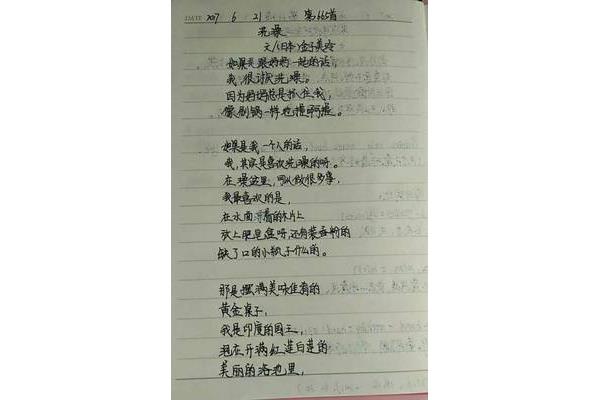 DATE 2017 6 21 第665首
洗澡
文/(日本)金子美玲
如果是跟妈妈一起的话,
我,很讨厌洗澡。
因为妈妈总是抓住我,
像刷锅一样也搓啊搓。
如果是我一个人的话,
我,其实是喜欢洗澡的呀。
在澡盆里,可以做很多事,
我最喜欢的是,
在水面浮着的木片上
放上肥皂盒呀,还有装香粉的
缺了口的小瓶子什么的。
那是摆满美味佳肴的
黄金桌子,
我是印度的国王,
泡在开满红莲白莲的
美丽的浴池里,